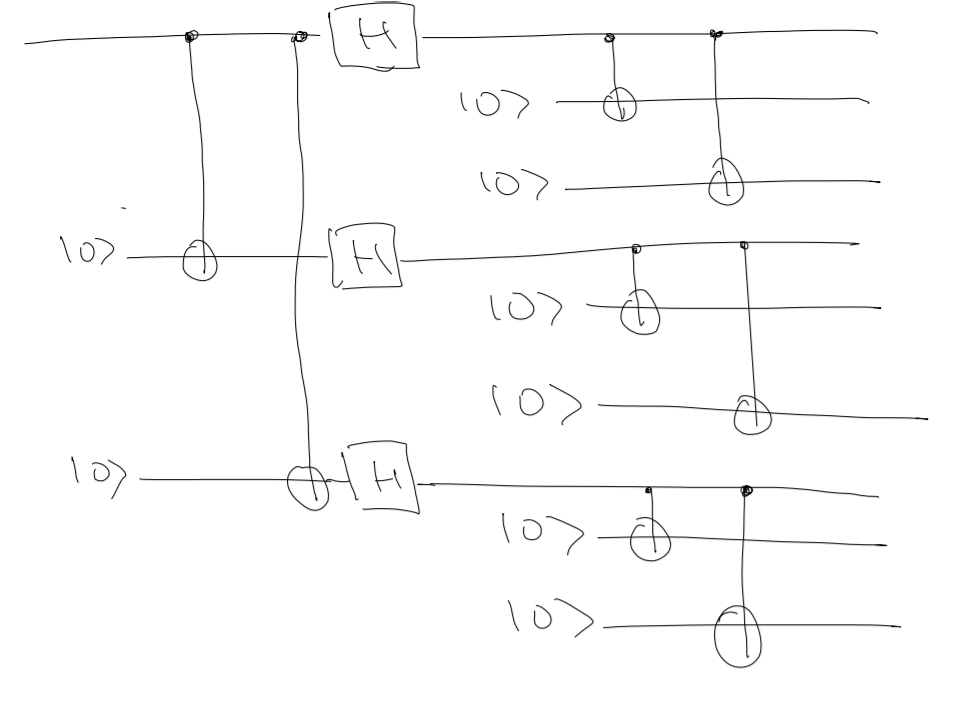 H
|0>
|0>
|0> H
|0>
|0>
|0> H
|0>
|0>